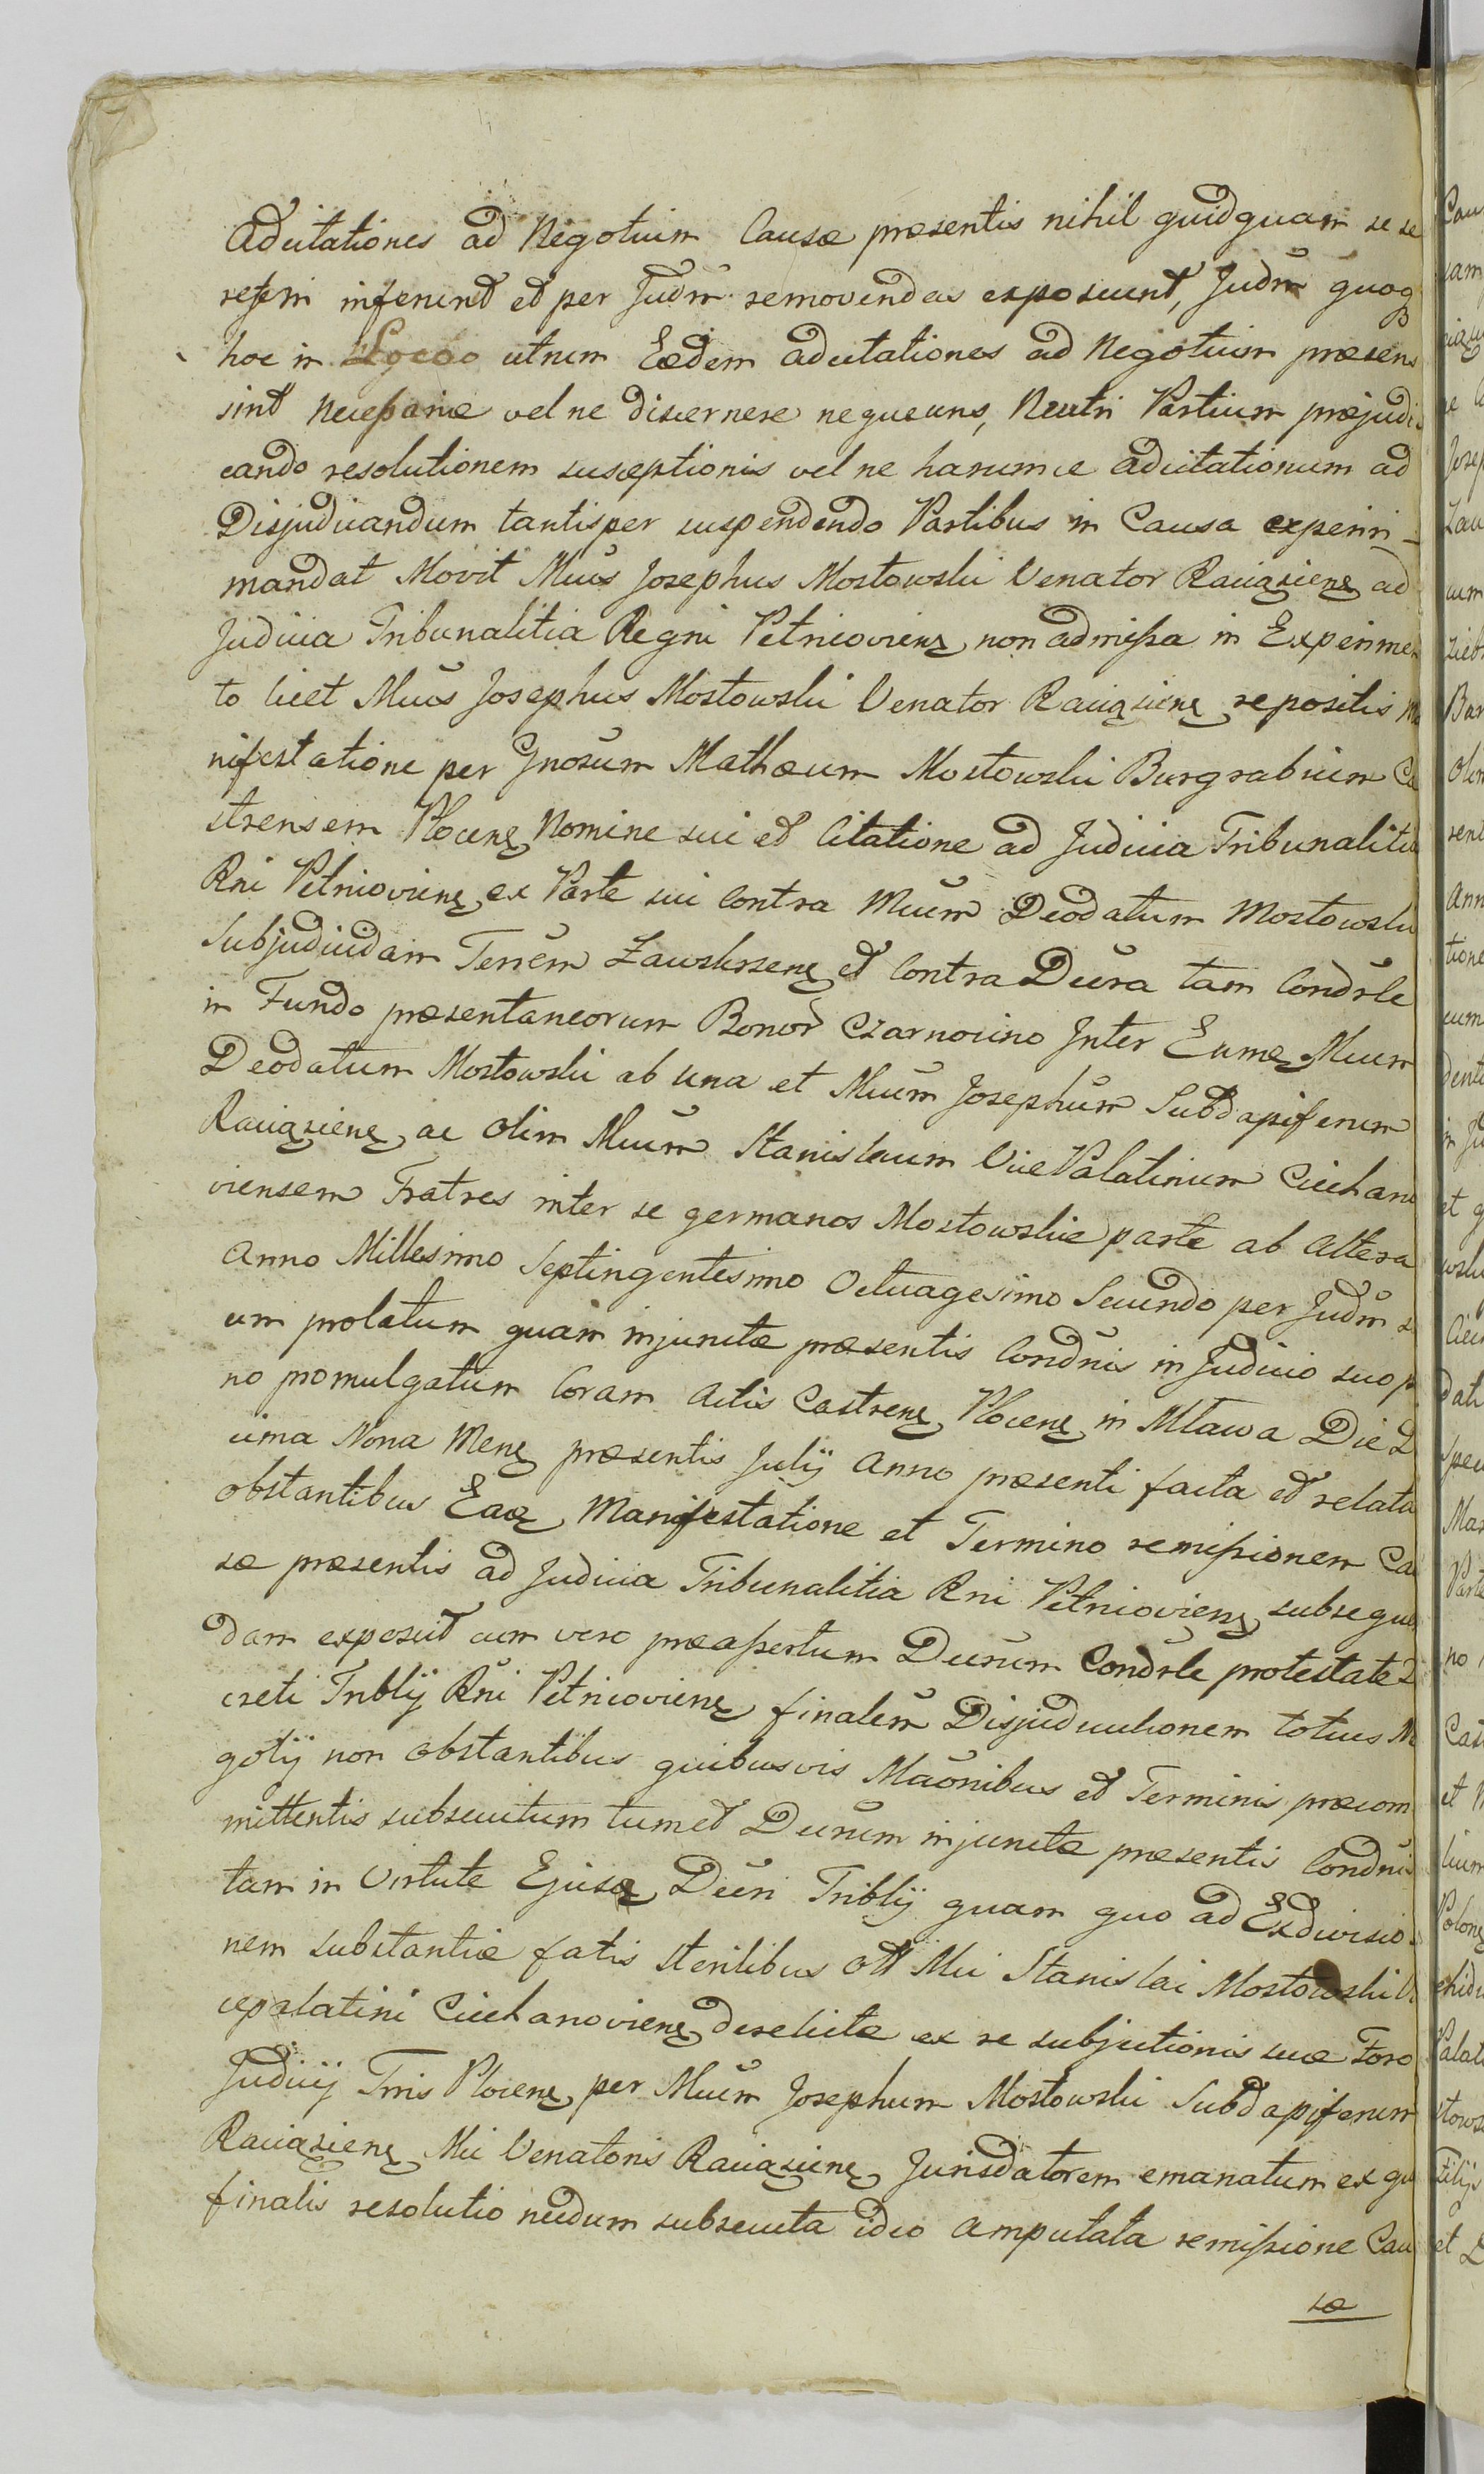 Adcitationes ad Negotium Causæ præsentis nihil quidquam se se
referri inferunt et per Judm removendas exposcunt, Judm quoq
hoc in Passo utrum Eædem adcitationes ad Negotium præsens
sint Necessariæ vel ne discernere nequeuns, Neutri Partium præjudi
cando resolutionem susceptionis vel ne harumce adcitationum ad
Disjudicandum tantisper suspendendo Partibus in Causa experiri
mandat Movit Mcus Josephus Mostowski Venator Raciąziens ad
Judicia Tribunalitia Regni Petricoviens non admissa in Experimen
to licet Mcus Josephus Mostowski Venator Raciąziens repositis Ma
nifestatione per Gnosum Mathæum Mostowski Burgrabium Ca
strensem Plocens Nomine sui et Citatione ad Judicia Tribunalitia
Rni Petricoviens ex Parte sui Contra Mcum Deodatum Mostowski
Subjudicidam Terrem Zawskrzens et Contra Decra tam Condrle
in Fundo præsentaneorum Bonor Czarnocino Inter Eumq Mcum
Deodatum Mostowski ab una et Mcum Josephum Subdapiferum
Raciąziens ac olim Mcum Stanislaum Vice Palatinum Ciechano
viensem Fratres inter se germanos Mostowskie parte ab altera
Anno Millesimo Septingentesimo Octuagesimo Secundo per Judm
um prolatum quam injunctæ præsentis Condnis in Judicio suo p
no promulgatum Coram Actis Castrens Plocens in Mława Die D
cima Nona Mens præsentis Julij Anno præsenti facta et relata
obstantibus Eaq Manifestatione et Termino remissionem Ca
sæ præsentis ad Judicia Tribunalitia Rni Petricoviens subsequen
dam exposcit cum vero præassertum Decrum Condrle protestate D
creti Triblij Rni Petricoviens finalem Disjudicationem totius Ne
gotij non obstantibus quibusvis Maonibus et Terminis præcom
mittentis subsecutum tum et Decrum injunctæ præsentis Condnis
tam in Virtute Ejusq Decri Triblij quam quo ad Exdivisio
nem substantiæ fatis sterilibus Ott Mci Stanislai Mostowski Vi
cepalatini Ciechanoviens derelictæ ex re subjectionis suæ Foro
Judicij Trris Plocens per Mcum Josephum Mostowski Subdapiferum
Raciąziens Mci Venatoris Raciąziens Jurisdatorem emanatum ex qu
finalis resolutio necdum subsecuta ideo amputata remissione Cau
sæ